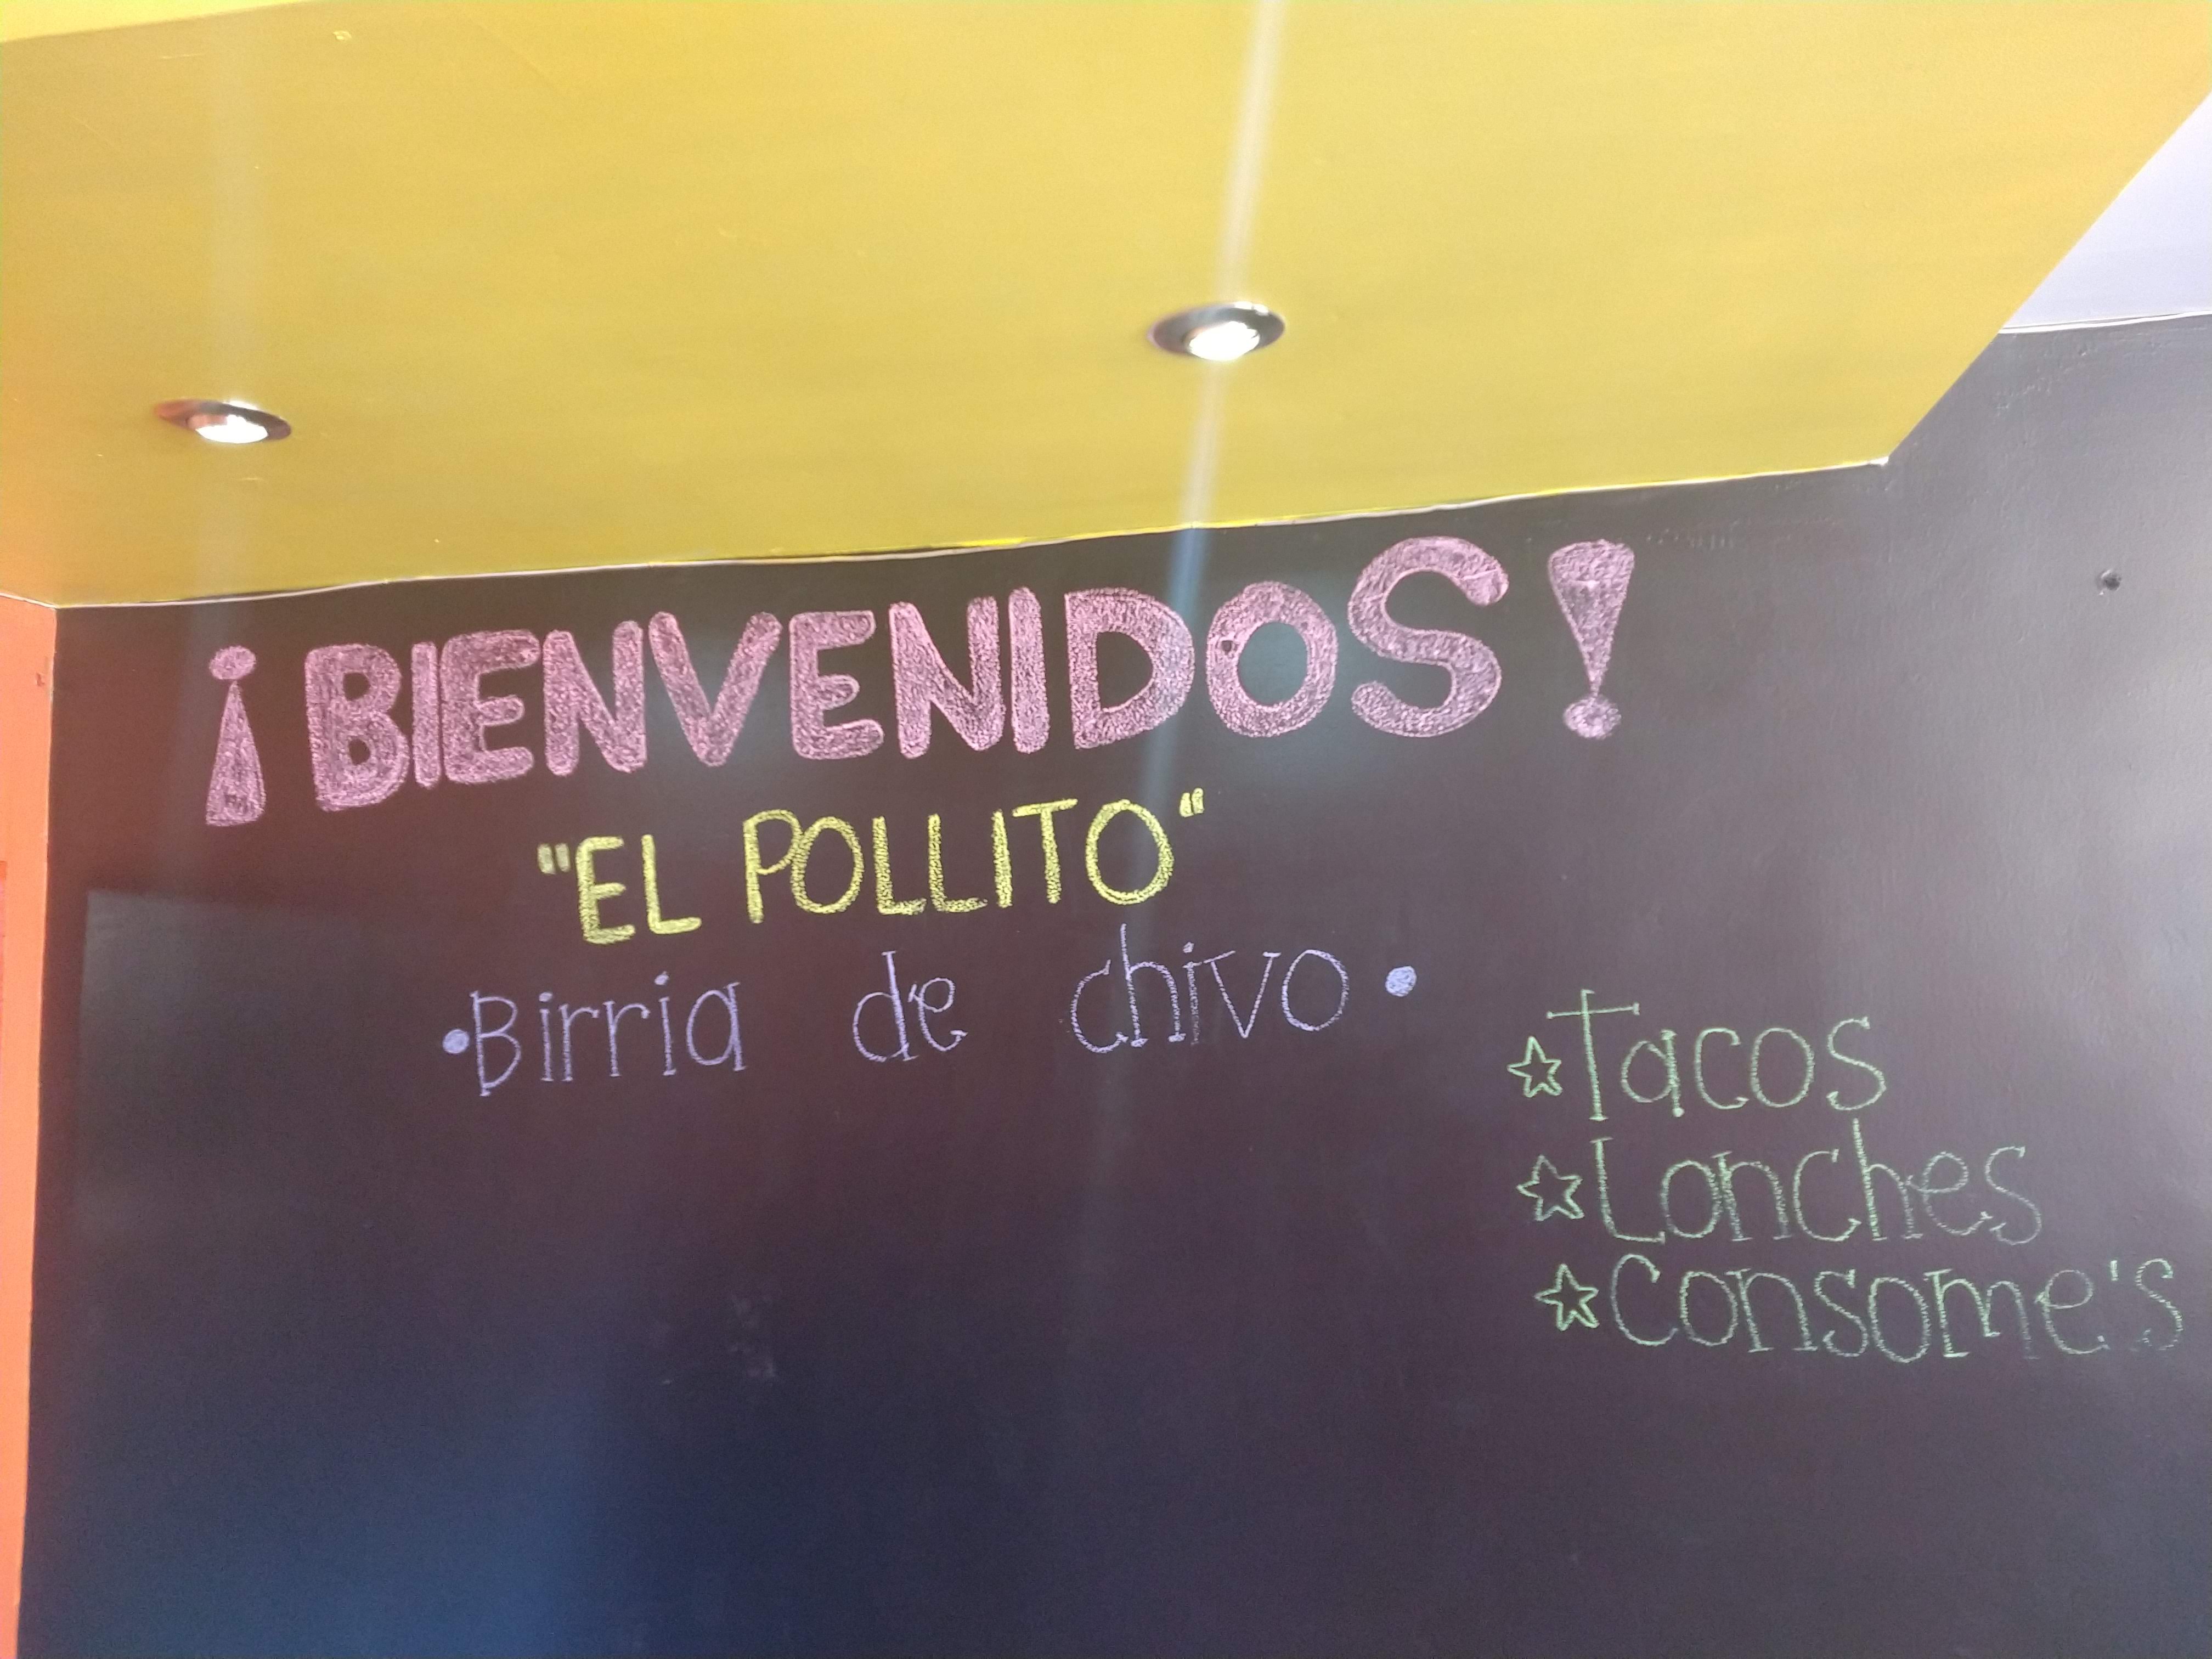 ¡BIENVENIDOS!
"EL POLLITO"
•Birria de chivo•
☆Tacos
☆Lonches
☆Consome's